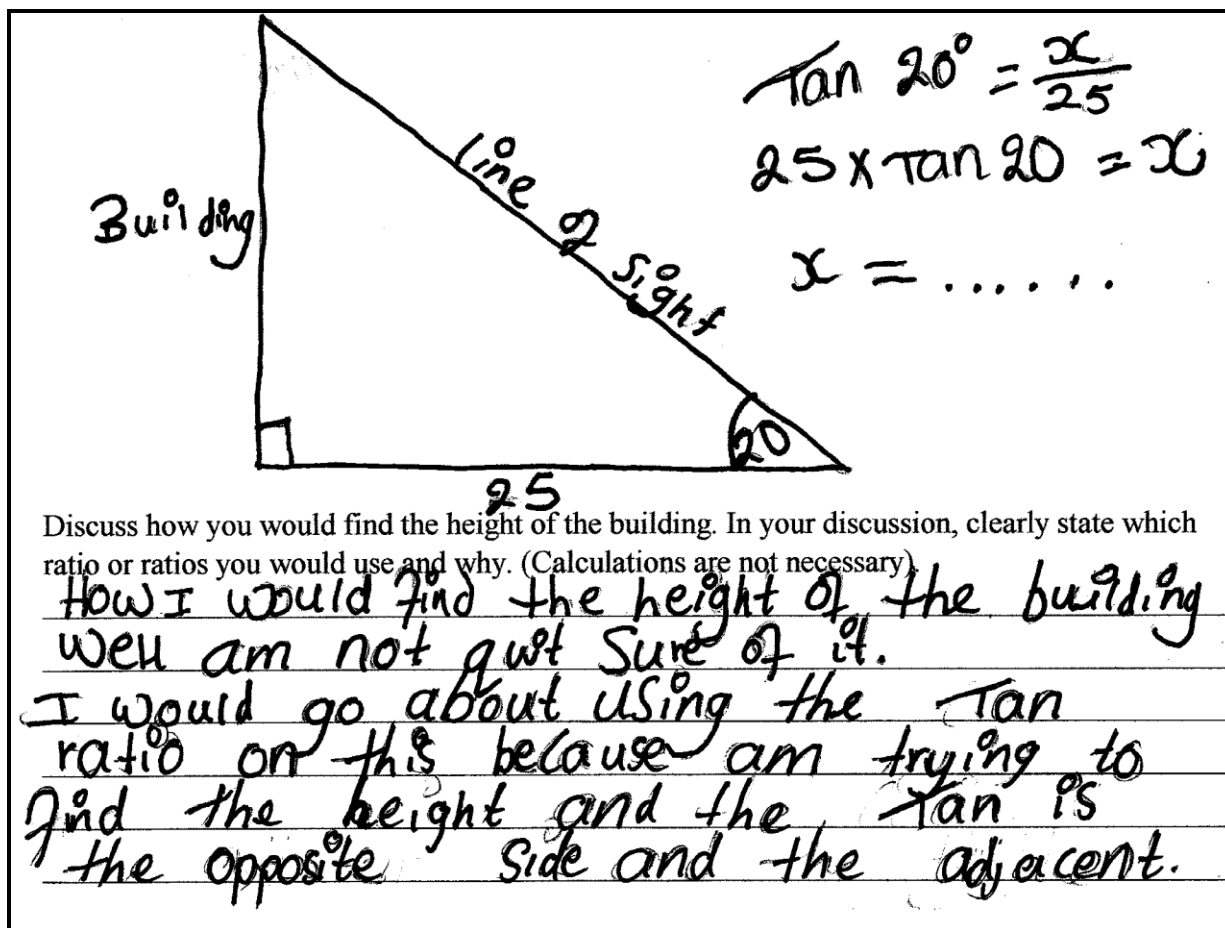 Tan 20° = x/25
25 x Tan 20 = x
x = ......
Building
line of sight
20
25
Discuss how you would find the height of the building. In your discussion, clearly state which
ratio or ratios you would use and why. (Calculations are not necessary).
How I would find the height of the building
well am not quit sure of it.
I would go about using the Tan
ratio on this because am trying to
find the height and the Tan is
the opposite side and the adjacent.